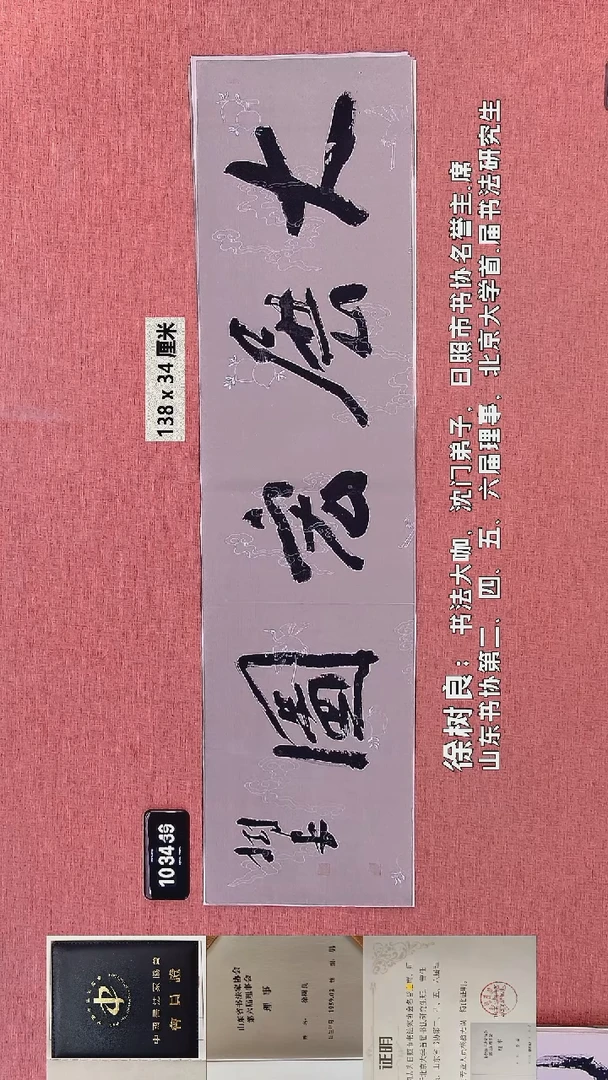 138 x 34 厘米
大展宏圖
树良
徐树良：书法大咖，沈门弟子，日照市书协名誉主席
山东书协第二、四、五、六届理事，北京大学首届书法研究生
10 34 39
會員證
山东省书法家协会
第六届理事会
理事
证明